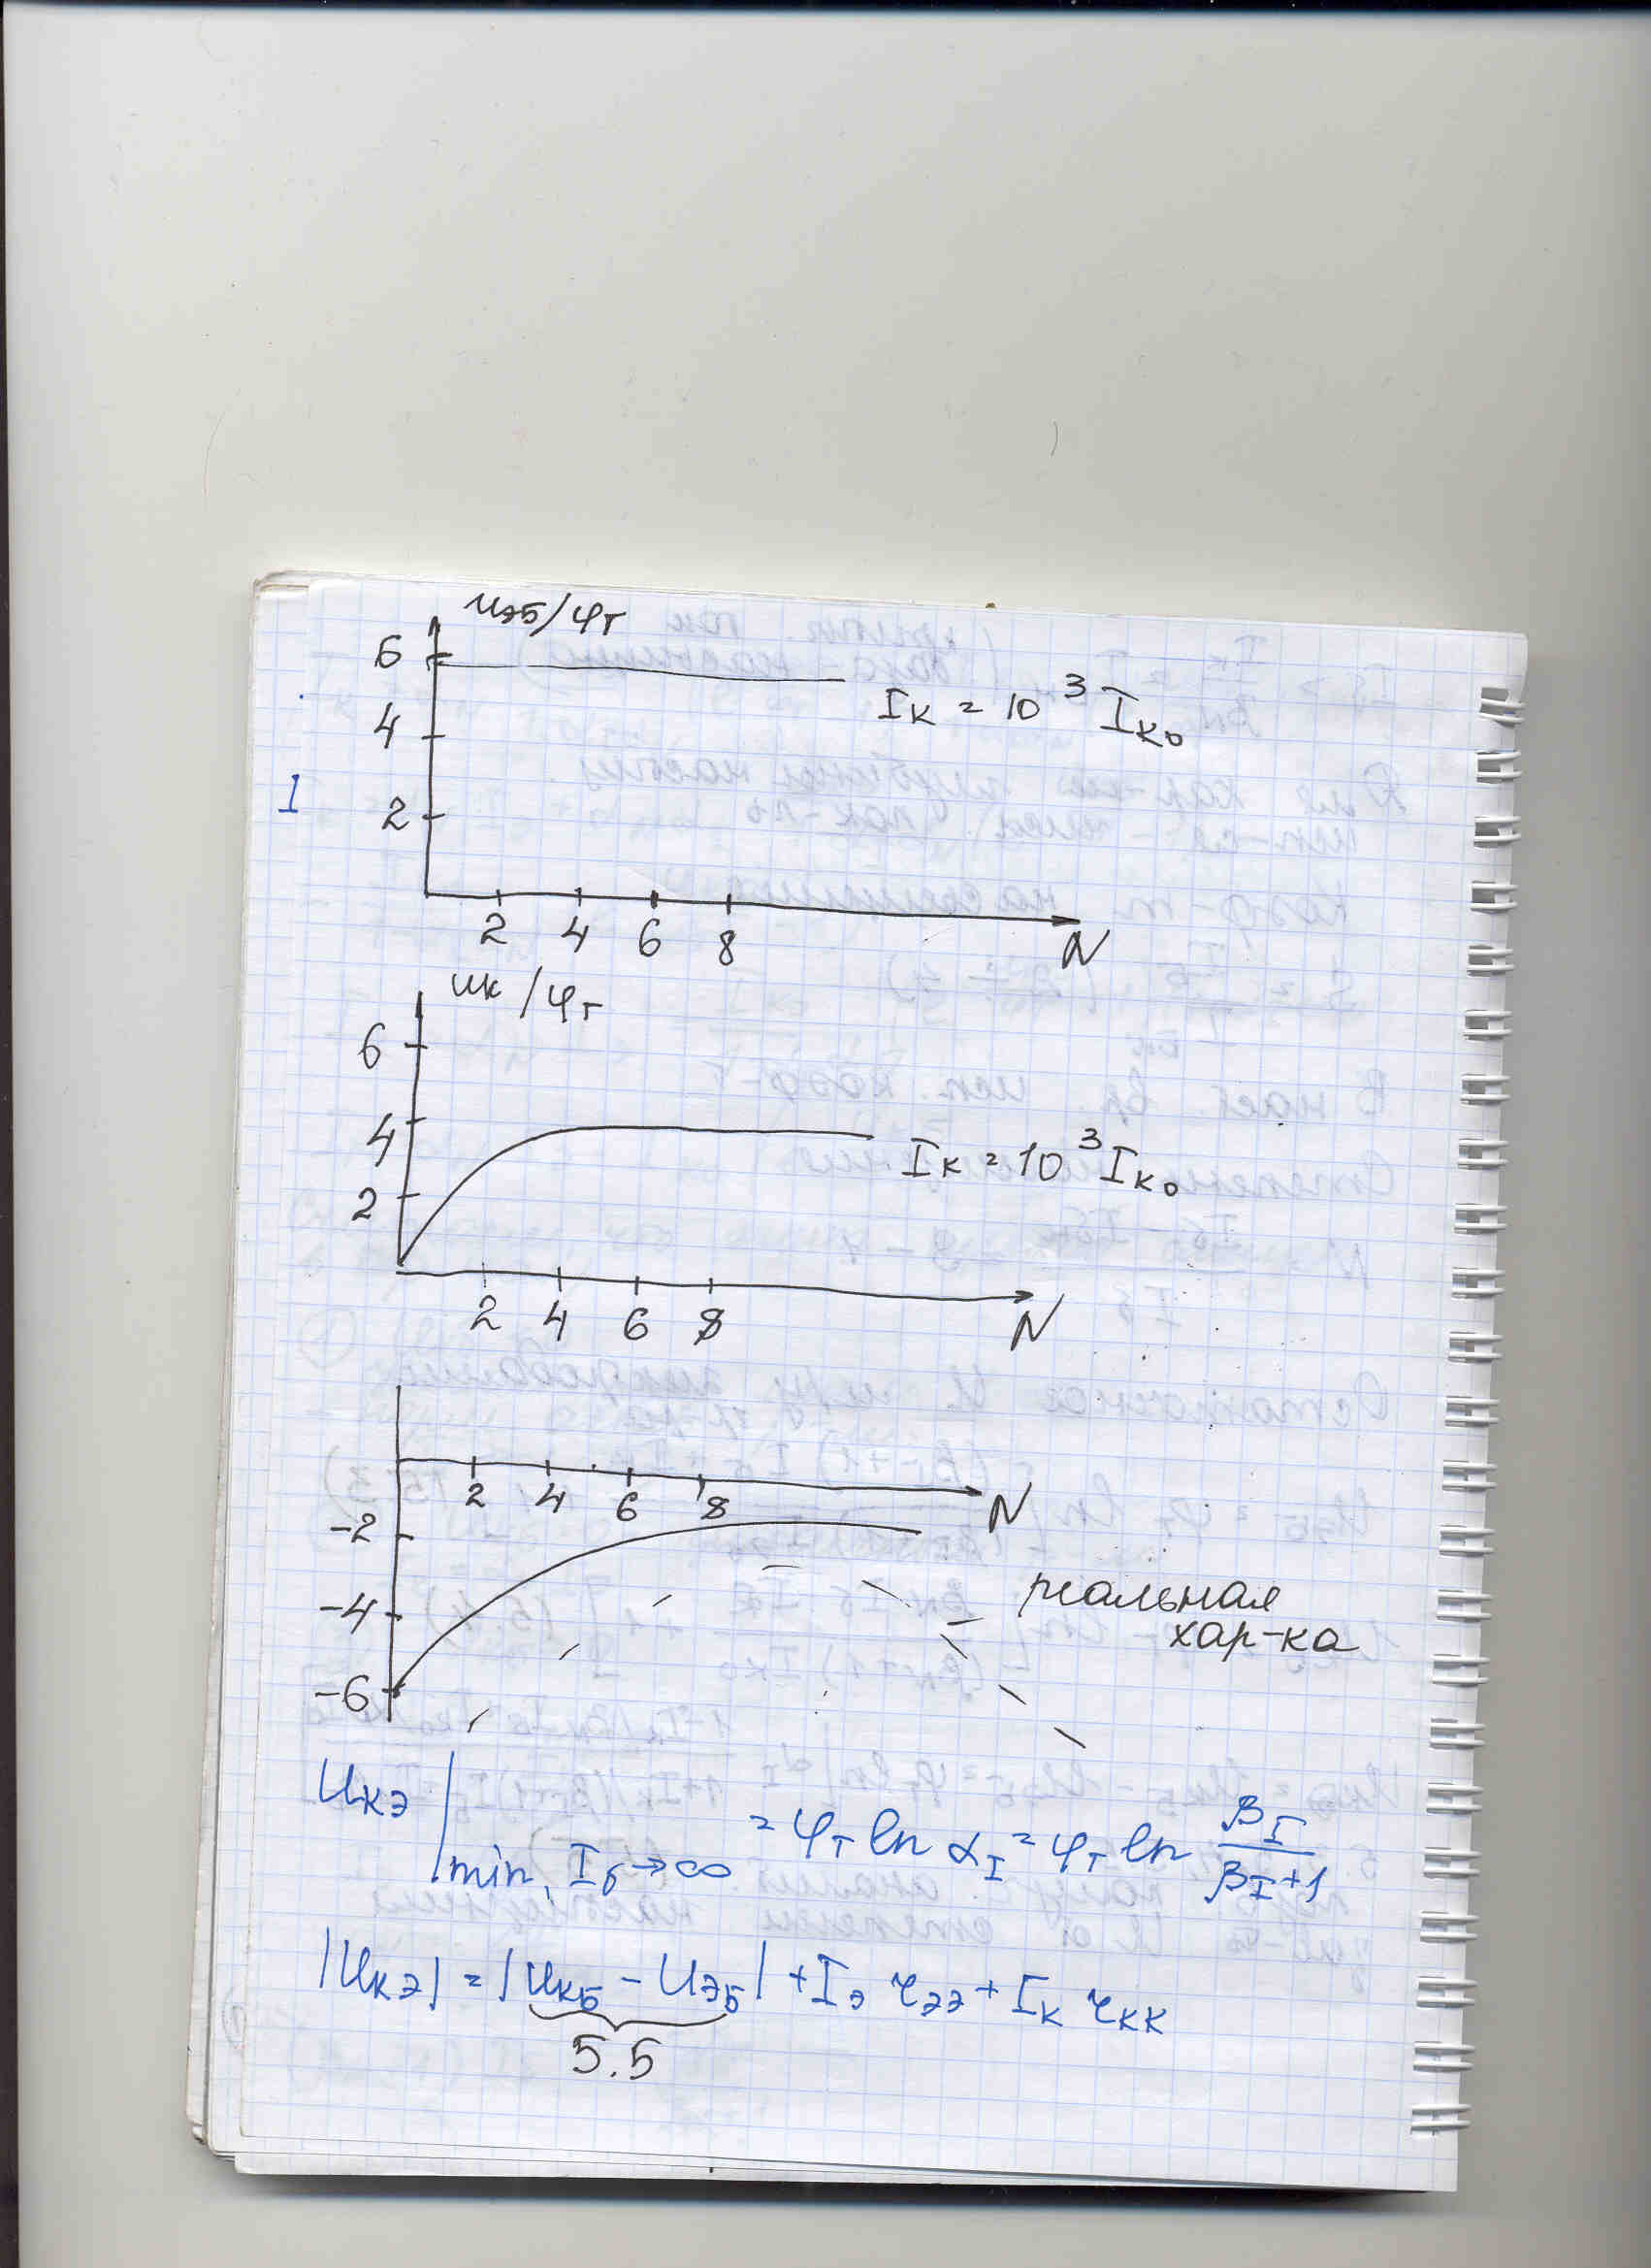 uэБ/φт
6
4
2
Iк = 10³ Iко
2 4 6 8 N
I
uк/φт
6
4
2
Iк = 10³ Iко
2 4 6 8 N
2 4 6 8 N
-2
-4
-6
реальная
хар-ка
Uкэ | min, Iб→∞ = φт ln αI = φт ln βI/(βI+1)
|Uкэ| = |UкБ - UэБ| + Iэ rээ + Iк rкк
5.5